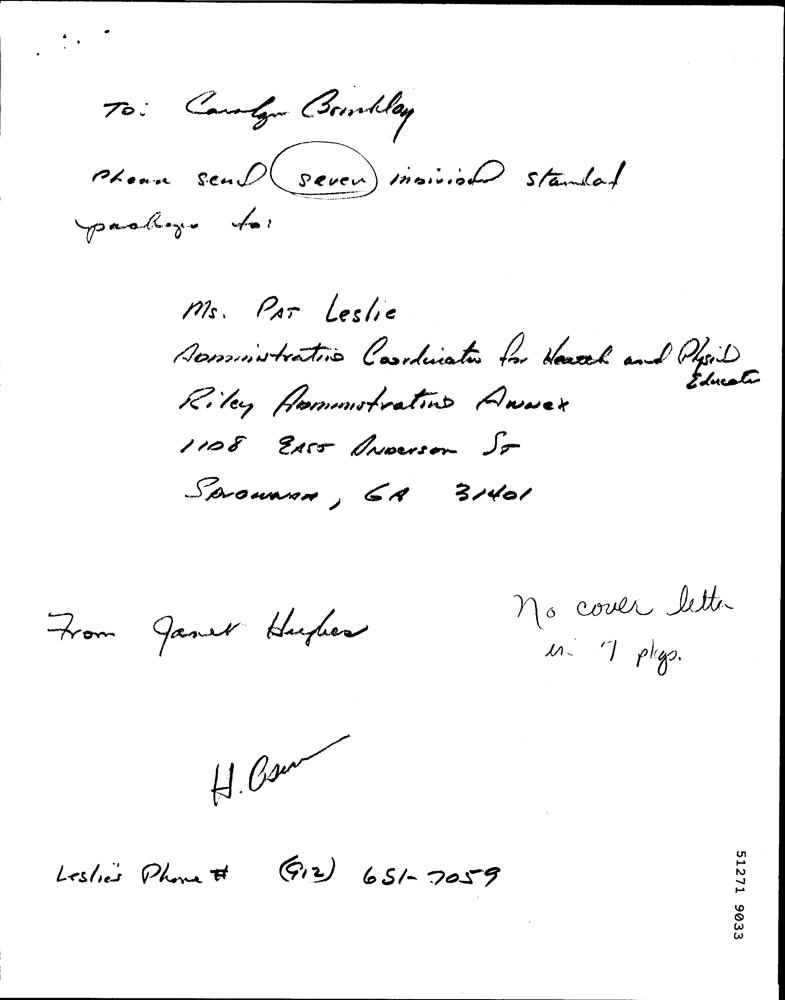 To: Carolyn Brinkley
Please send seven individual standard
packages to:
Ms. PAT Leslie
Administrative Coordinator for Health and Physical
Education
Riley Administrative Annex
1108 EAST Anderson ST
Savannah, GA 31401
From Janet Hughes
No cover letter
in 7 pkgs.
H.
Leslie's Phone # (912) 651-7059
51271 9033